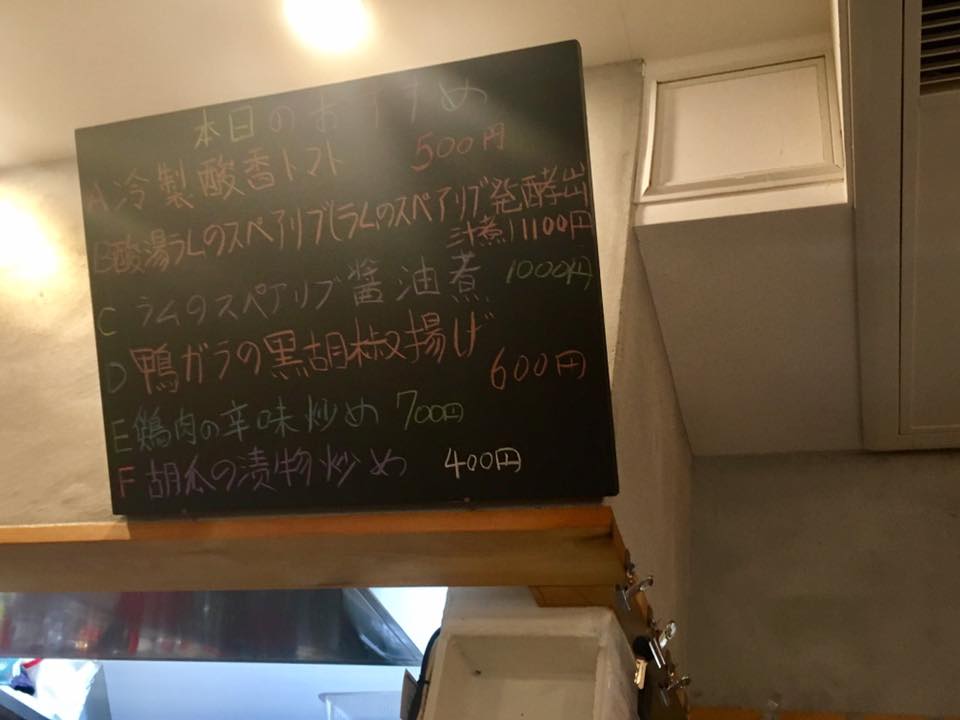 本日のおすすめ
A 冷製酸香トマト 500円
B 酸湯ラムのスペアリブ(ラムのスペアリブ発酵出
汁煮) 1100円
C ラムのスペアリブ醤油煮 1000円
D 鴨ガラの黒胡椒揚げ
600円
E 鶏肉の辛味炒め 700円
F 胡瓜の漬物炒め 400円